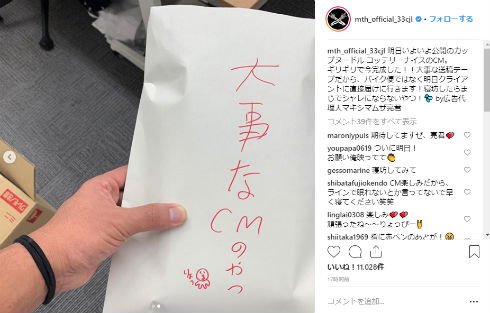 大事な
CMのやつ
mth_official_33cjl • フォローする
mth_official_33cjl 明日いよいよ公開のカッ
プヌードル コッテリーナイスのCM。
ギリギリで今完成した!!大事な送稿テー
プだから、バイク便ではなく明日クライア
ントに直接届けに行きます!寝坊したらま
じでシャレにならないやつ! by広告代
理人マキシマムザ亮君
コメント39件をすべて表示
maroniypuis 期待してますぜ、亮君
youpapa0619 ついに明日!
お願い俺映ってて
gessomarine 寝坊してみて
shibatafujiokendo CM楽しみだから、
ラインで眠れないとか言ってないで早
く寝てください笑笑
linglai0308 楽しみ
頑張ったね〜〜りょうぴー
shiitaka1969
いいね!11,028件
17時間前
コメントを追加...